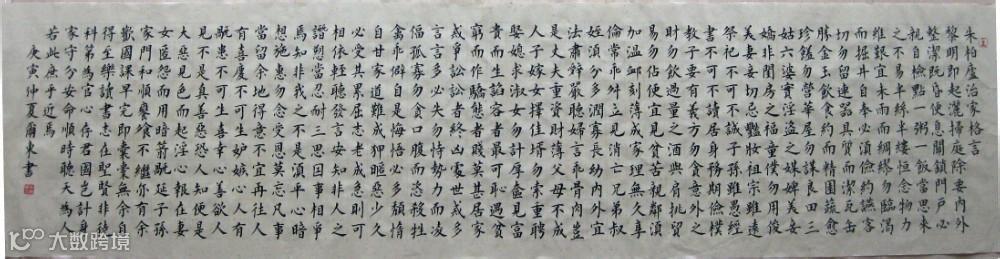 朱柏廬治家格言
黎明即起灑掃庭除要内外
整潔既昏便息關鎖門戶必
親自檢點一粥一飯當思來
處之不易半絲半縷恒念物力
維艱宜未雨而綢繆勿臨渴
而掘井自奉必須儉約讌客
切勿留連器具質而潔瓦缶
勝金玉飲食約而精園蔬愈
珍饈勿營華屋勿謀良田三
姑六婆實淫盜之媒婢美妾
嬌非閨房之福童僕勿用俊
美妻妾切忌艷妝祖宗雖遠
祭祀不可不誠子孫雖愚經
書不可不讀居身務期儉樸
教子要有義方勿貪意外之
財勿飲過量之酒與肩挑貿
易勿佔便宜見貧苦親鄰須
加溫卹刻薄成家理無久享
倫常乖舛立見消亡兄弟叔
姪須分多潤寡長幼内外宜
法肅辭嚴聽婦言乖骨肉豈
是丈夫重資財薄父母不成
人子嫁女擇佳婿勿索重聘
娶媳求淑女勿計厚奩見富
貴而生諂容者最可恥遇貧
窮而作驕態者賤莫甚居家
戒爭訟訟者終凶處世戒多
言言多必失勿恃勢力而凌
偪孤寡勿貪口腹而恣殺牲
禽乖僻自是悔悟必多頹惰
自甘家道難成狎暱惡少久
必受其累屈志老成急則可
相依輕聽發言安知非人之
譖愬當忍耐三思因事相爭
焉知非我之不是須平心暗
想施惠勿念受恩莫忘凡事
當留餘地得意不宜再往人
有喜慶不可生妒嫉心人有
禍患不可生喜幸心善欲人
見不是真善惡恐人知便是
大惡見色而起淫心報在妻
女匿怨而用暗箭禍延子孫
家門和順饔飧不繼亦有餘
歡國課早完即囊橐無餘自
得至樂讀書志在聖賢非徒
科第為官心存君國豈計身
家守分安命順時聽天為人
若此庶乎近焉
庚寅仲夏蕭東書
大数跨境